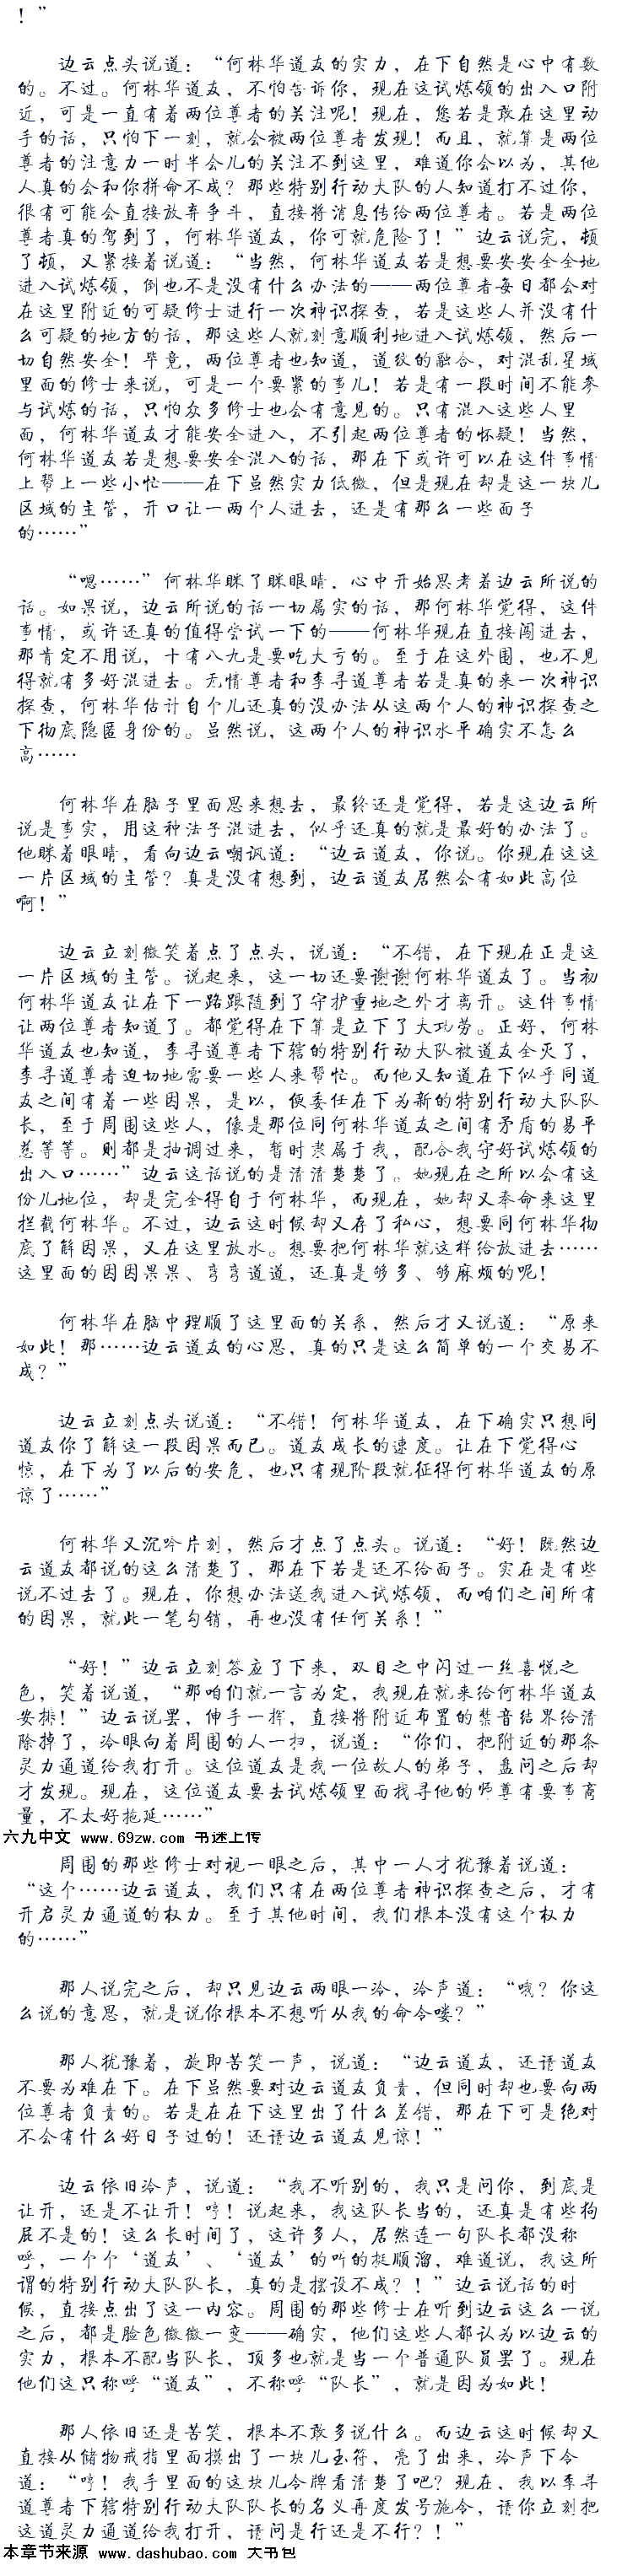 ！”
边云点头说道：“何林华道友的实力，在下自然是心中有数
的。不过。何林华道友，不怕告诉你，现在这试炼领的出入口附
近，可是一直有着两位尊者的关注呢！现在，您若是敢在这里动
手的话，只怕下一刻，就会被两位尊者发现！而且，就算是两位
尊者的注意力一时半会儿的关注不到这里，难道你会以为，其他
人真的会和你拼命不成？那些特别行动大队的人知道打不过你，
很有可能会直接放弃争斗，直接将消息传给两位尊者。若是两位
尊者真的驾到了，何林华道友，你可就危险了！”边云说完，顿
了顿，又紧接着说道：“当然，何林华道友若是想要安安全全地
进入试炼领，倒也不是没有什么办法的——两位尊者每日都会对
在这里附近的可疑修士进行一次神识探查，若是这些人并没有什
么可疑的地方的话，那这些人就刻意顺利地进入试炼领，然后一
切自然安全！毕竟，两位尊者也知道，道纹的融合，对混乱星域
里面的修士来说，可是一个要紧的事儿！若是有一段时间不能参
与试炼的话，只怕众多修士也会有意见的。只有混入这些人里
面，何林华道友才能安全进入，不引起两位尊者的怀疑！当然，
何林华道友若是想要安全混入的话，那在下或许可以在这件事情
上帮上一些小忙——在下虽然实力低微，但是现在却是这一块儿
区域的主管，开口让一两个人进去，还是有那么一些面子
的……”
“嗯……”何林华眯了眯眼睛，心中开始思考着边云所说的
话。如果说，边云所说的话一切属实的话，那何林华觉得，这件
事情，或许还真的值得尝试一下的——何林华现在直接闯进去，
那肯定不用说，十有八九是要吃大亏的。至于在这外围，也不见
得就有多好混进去。无情尊者和李寻道尊者若是真的来一次神识
探查，何林华估计自个儿还真的没办法从这两个人的神识探查之
下彻底隐匿身份的。虽然说，这两个人的神识水平确实不怎么
高……
何林华在脑子里面思来想去，最终还是觉得，若是这边云所
说是事实，用这种法子混进去，似乎还真的就是最好的办法了。
他眯着眼睛，看向边云嘲讽道：“边云道友，你说。你现在这这
一片区域的主管？真是没有想到，边云道友居然会有如此高位
啊！”
边云立刻微笑着点了点头，说道：“不错，在下现在正是这
一片区域的主管。说起来，这一切还要谢谢何林华道友了。当初
何林华道友让在下一路跟随到了守护重地之外才离开。这件事情
让两位尊者知道了。都觉得在下算是立下了大功劳。正好，何林
华道友也知道，李寻道尊者下辖的特别行动大队被道友全灭了，
李寻道尊者迫切地需要一些人来帮忙。而他又知道在下似乎同道
友之间有着一些因果，是以，便委任在下为新的特别行动大队队
长，至于周围这些人，像是那位同何林华道友之间有矛盾的易平
慈等等。则都是抽调过来，暂时隶属于我，配合我守好试炼领的
出入口……”边云这话说的是清清楚楚了。她现在之所以会有这
份儿地位，却是完全得自于何林华，而现在，她却又奉命来这里
拦截何林华。不过，边云这时候却又存了私心，想要同何林华彻
底了解因果，又在这里放水。想要把何林华就这样给放进去……
这里面的因因果果、弯弯道道，还真是够多、够麻烦的呢！
何林华在脑中理顺了这里面的关系，然后才又说道：“原来
如此！那……边云道友的心思，真的只是这么简单的一个交易不
成？”
边云立刻点头说道：“不错！何林华道友，在下确实只想同
道友你了解这一段因果而已。道友成长的速度。让在下觉得心
惊，在下为了以后的安危，也只有现阶段就征得何林华道友的原
谅了……”
何林华又沉吟片刻，然后才点了点头。说道：“好！既然边
云道友都说的这么清楚了，那在下若是还不给面子。实在是有些
说不过去了。现在，你想办法送我进入试炼领，而咱们之间所有
的因果，就此一笔勾销，再也没有任何关系！”
“好！”边云立刻答应了下来，双目之中闪过一丝喜悦之
色，笑着说道，“那咱们就一言为定，我现在就来给何林华道友
安排！”边云说罢，伸手一挥，直接将附近布置的禁音结界给清
除掉了，冷眼向着周围的人一扫，说道：“你们，把附近的那条
灵力通道给我打开。这位道友是我一位故人的弟子，盘问之后却
才发现。现在，这位道友要去试炼领里面找寻他的师尊有要事商
量，不太好拖延……”
六九中文 www.69zw.com 书迷上传
周围的那些修士对视一眼之后，其中一人才犹豫着说道：
“这个……边云道友，我们只有在两位尊者神识探查之后，才有
开启灵力通道的权力。至于其他时间，我们根本没有这个权力
的……”
那人说完之后，却只见边云两眼一冷，冷声道：“哦？你这
么说的意思，就是说你根本不想听从我的命令喽？”
那人犹豫着，旋即苦笑一声，说道：“边云道友，还请道友
不要为难在下。在下虽然要对边云道友负责，但同时却也要向两
位尊者负责的。若是在在下这里出了什么差错，那在下可是绝对
不会有什么好日子过的！还请边云道友见谅！”
边云依旧冷声，说道：“我不听别的，我只是问你，到底是
让开，还是不让开！哼！说起来，我这队长当的，还真是有些狗
屁不是的！这么长时间了，这许多人，居然连一句队长都没称
呼，一个个‘道友’、‘道友’的听的挺顺溜，难道说，我这所
谓的特别行动大队队长，真的是摆设不成？！”边云说话的时
候，直接点出了这一内容。周围的那些修士在听到边云这么一说
之后，都是脸色微微一变——确实，他们这些人都认为以边云的
实力，根本不配当队长，顶多也就是当一个普通队员罢了。现在
他们这只称呼“道友”，不称呼“队长”，就是因为如此！
那人依旧还是苦笑，根本不敢多说什么。而边云这时候却又
直接从储物戒指里面摸出了一块儿玉符，亮了出来，冷声下令
道：“哼！我手里面的这块儿令牌看清楚了吧？现在，我以李寻
道尊者下辖特别行动大队队长的名义再度发号施令，请你立刻把
这道灵力通道给我打开，请问是行还是不行？！”
本章节来源 www.dashubao.com 大书包